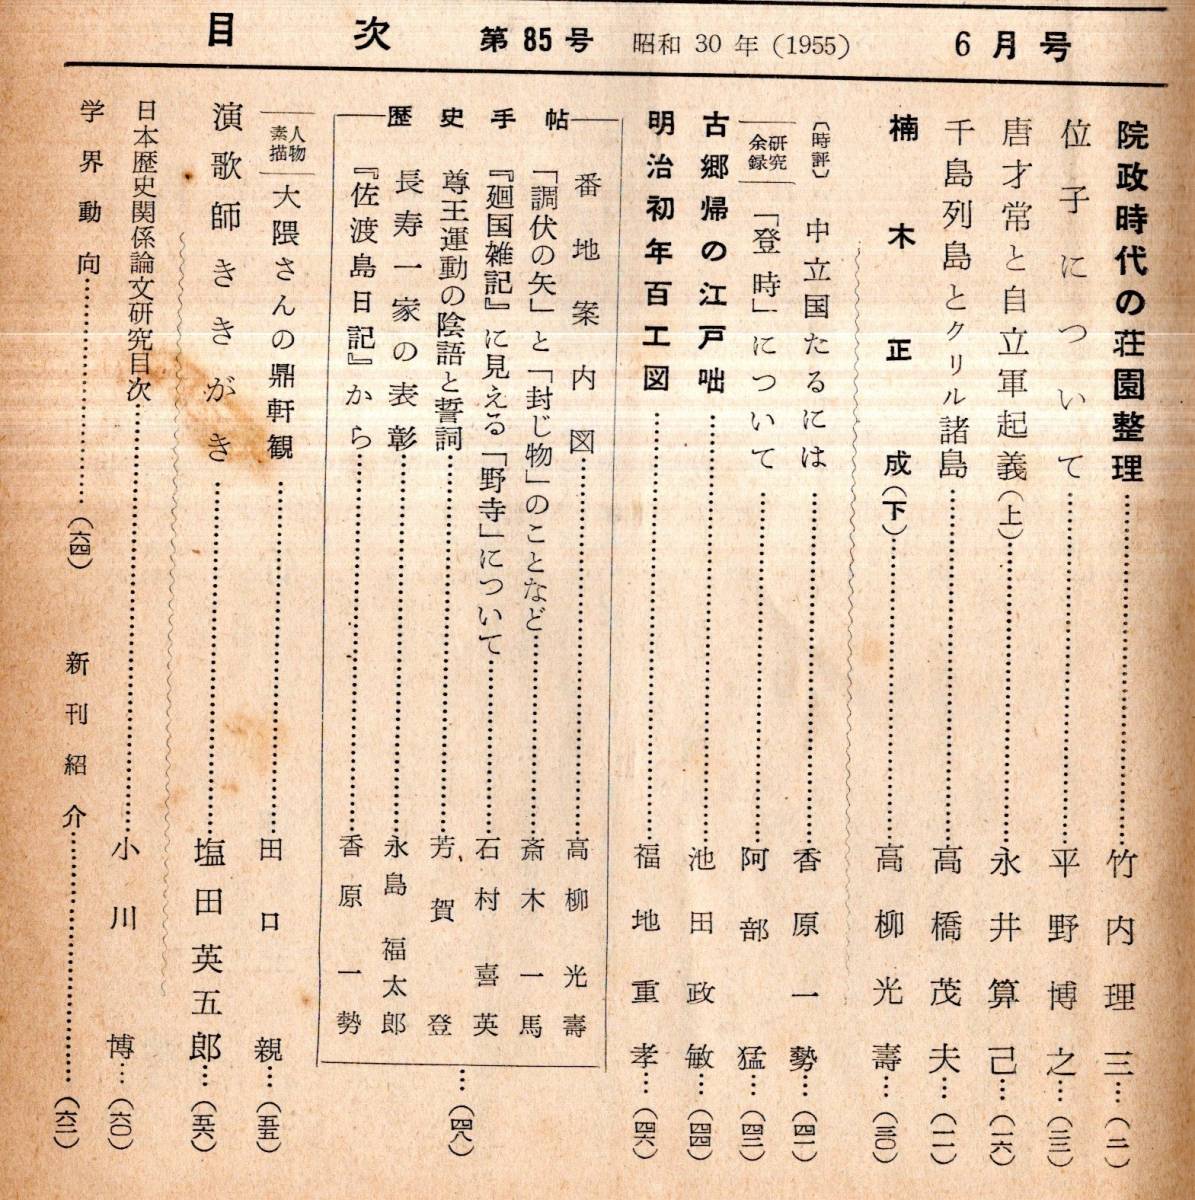 目次 第85号 昭和30年(1955) 6月号
院政時代の荘園整理……竹内理三…(二)
位子について……平野博之…(一三)
唐才常と自立軍起義(上)……永井算己…(一六)
千島列島とクリル諸島……高橋茂夫…(二一)
楠木正成(下)……高柳光壽…(三〇)
〔時評〕 中立国たるには……香原一勢…(四一)
研究余録 「登時」について……阿部猛…(四二)
古郷帰の江戸咄……池田政敏…(四四)
明治初年百工図……福地重孝…(四六)
歴史手帖
番地案内図……高柳光壽
「調伏の矢」と「封じ物」のことなど……斎木一馬
『廻国雑記』に見える「野寺」について……石村喜英
尊王運動の陰語と誓詞……芳賀登
長寿一家の表彰……永島福太郎
『佐渡島日記』から……香原一勢
…(四八)
人物素描 大隈さんの鼎軒観……田口親…(五五)
演歌師ききがき……塩田英五郎…(五六)
日本歴史関係論文研究目次……小川博…(六〇)
学界動向……(六四) 新刊紹介……(六二)